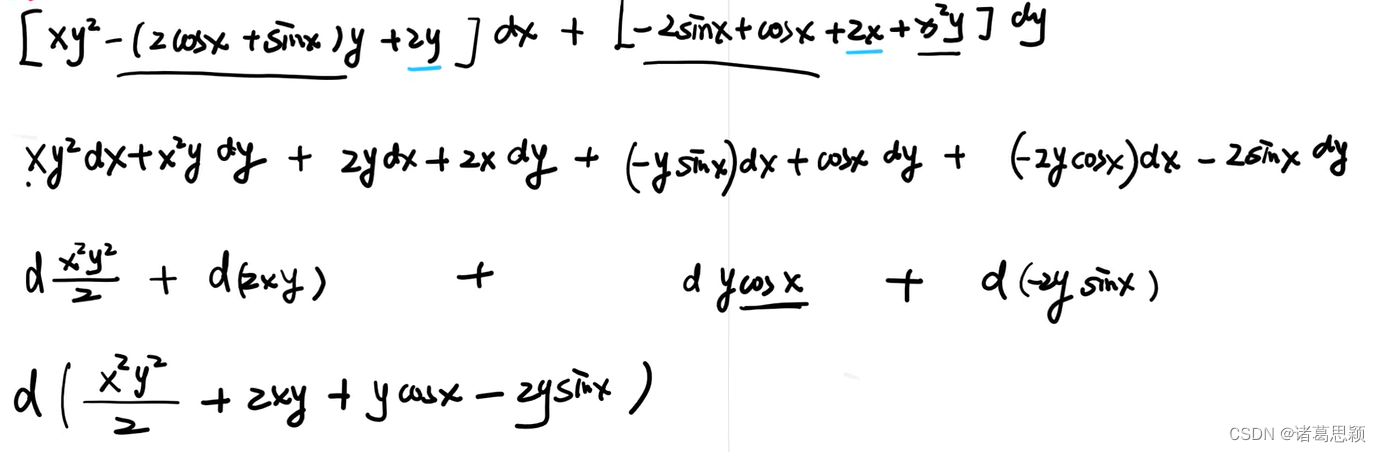 [xy²-(2cosx+sinx)y+2y]dx+[-2sinx+cosx+2x+x²y]dy
xy²dx+x²ydy+2ydx+2xdy+(-ysinx)dx+cosxdy+(-2ycosx)dx-2sinxdy
d x²y²/2 + d(2xy) + d ycosx + d(-2ysinx)
d(x²y²/2+2xy+ycosx-2ysinx)
CSDN @诸葛思颖